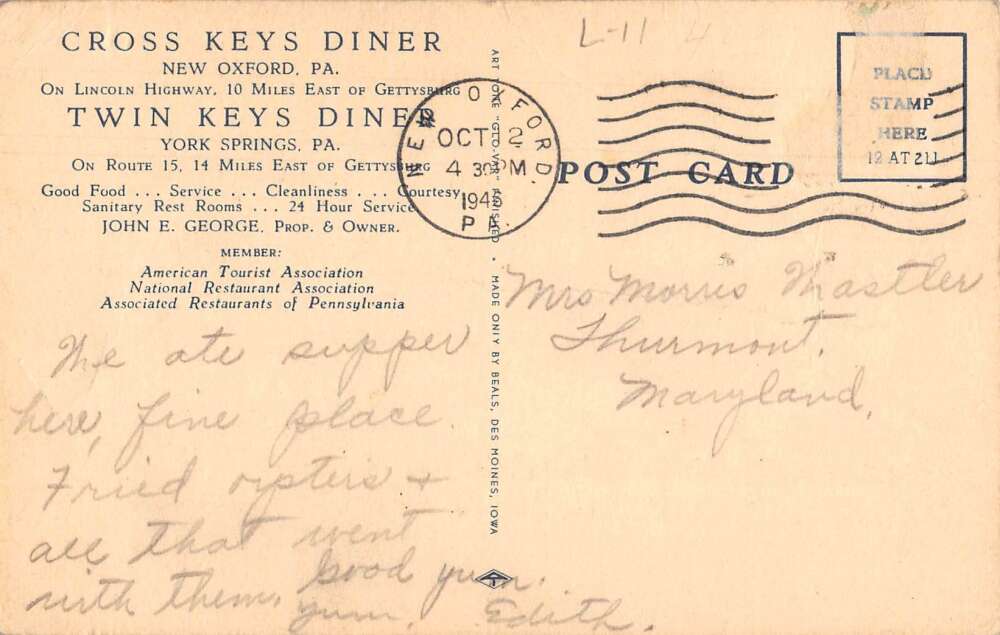 CROSS KEYS DINER
NEW OXFORD, PA.
ON LINCOLN HIGHWAY, 10 MILES EAST OF GETTYSBURG
TWIN KEYS DINER
YORK SPRINGS, PA.
ON ROUTE 15, 14 MILES EAST OF GETTYSBURG
Good Food ... Service ... Cleanliness ... Courtesy
Sanitary Rest Rooms ... 24 Hour Service
JOHN E. GEORGE, PROP. & OWNER.
MEMBER:
American Tourist Association
National Restaurant Association
Associated Restaurants of Pennsylvania
We ate supper
here, fine place.
Fried oysters +
all that went
with them. Good yum.
yum. Edith.
ART TONE "GLO-VAR" FINISHED • MADE ONLY BY BEALS, DES MOINES, IOWA
NEW OXFORD.
OCT 2
4 30 PM
1945
PA.
L-11 4
POST CARD
PLACE
STAMP
HERE
Mrs Morris
Thurmont.
Maryland.